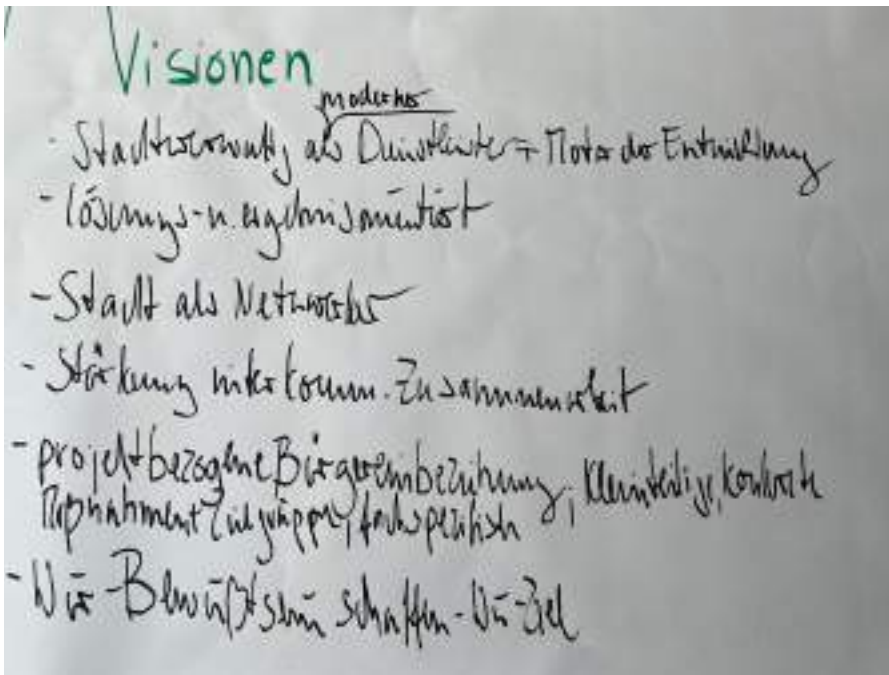 Visionen
moderner
- Stadtverwaltung als Dienstleister + Motor der Entwicklung
- lösungs- u. ergebnisorientiert
- Stadt als Networker
- Stärkung interkomm. Zusammenarbeit
- projektbezogene Bürgereinbeziehung, kleinteilige, konkrete
Maßnahmen + Zielgruppen, fachspezifisch
- Wir-Bewußtsein schaffen - Wir-Ziel